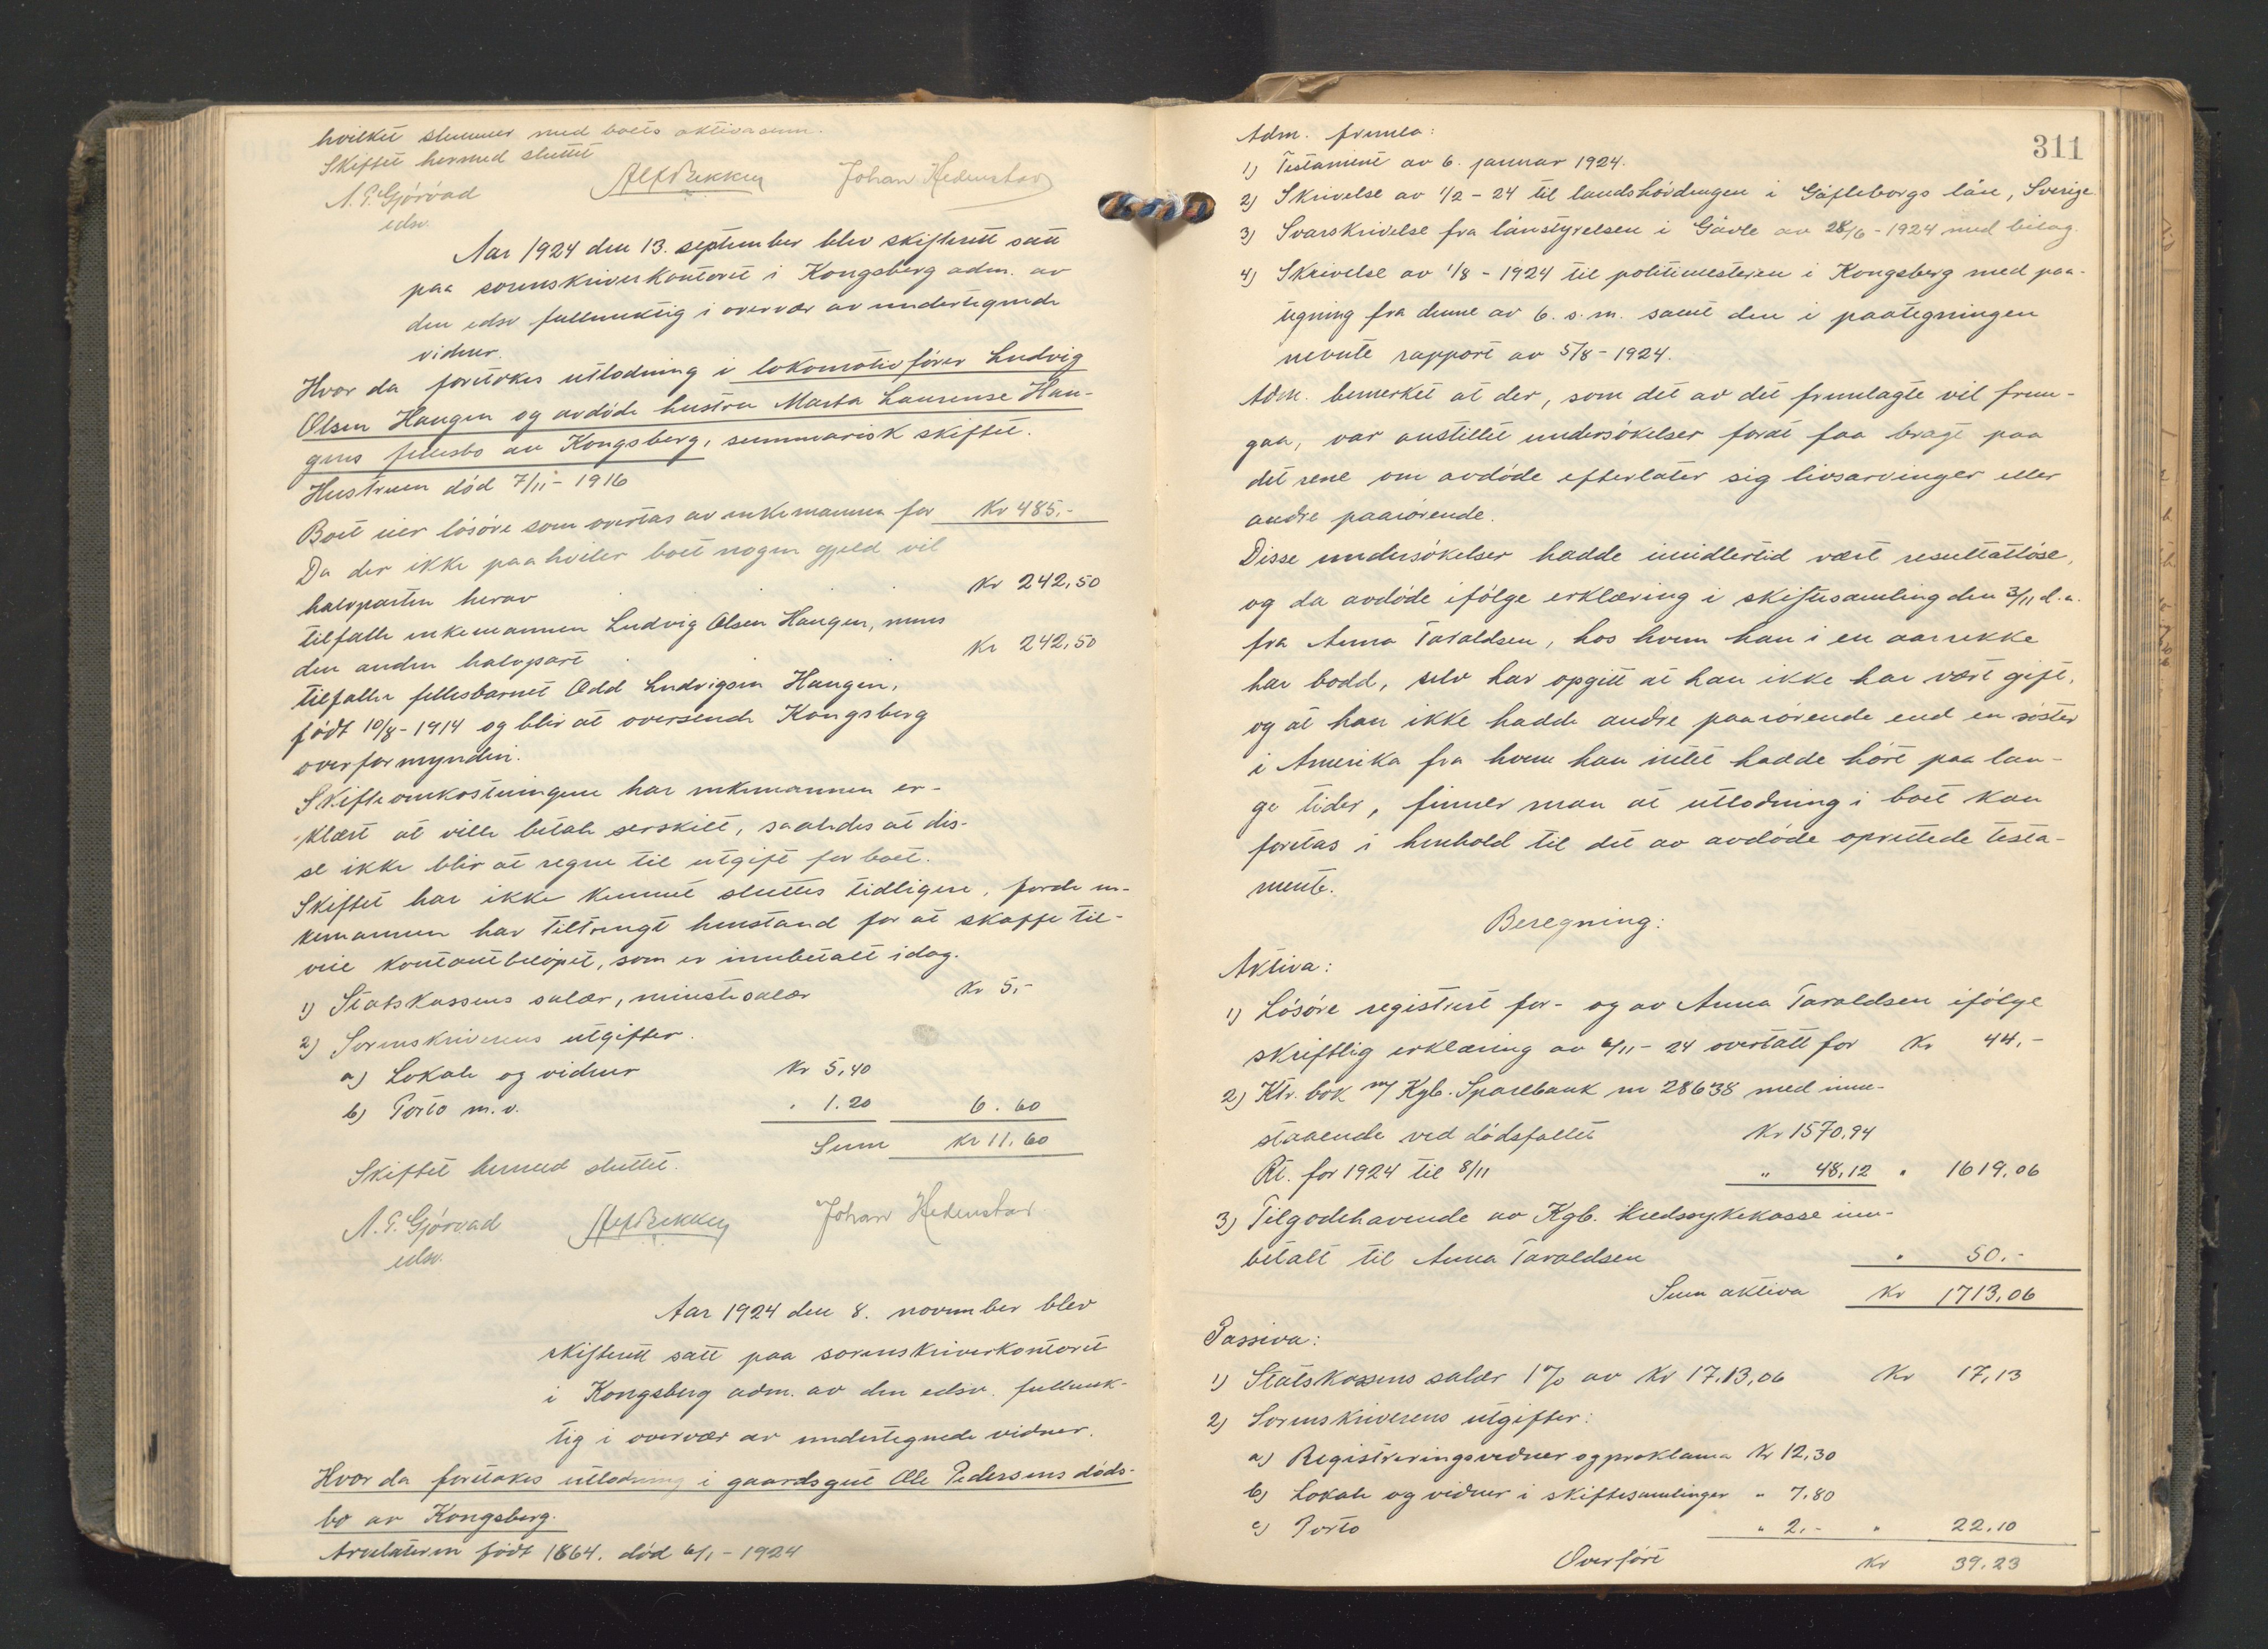 hvilket stemmer med boets aktivasum.
Skiftet hermed sluttet
N. P. Gjörvad Alf Bekken Johan Hedenstad
edsv.
Aar 1924 den 13. september blev skifterett satt
paa sorenskriverkontoret i Kongsberg adm. av
den edsv fullmektig i overvær av undertegnede
vidner.
Hvor da foretokes utlodning i lokomotivförer Ludvig
Olsen Haugen og avdöde hustru Marta Laurense Hau-
gens fellesbo av Kongsberg, summarisk skiftet.
Hustruen död 7/11 - 1916
Boet eier lösöre som overtas av enkemannen for Kr 485.-
Da der ikke paahviler boet nogen gjeld vil
halvparten herav Kr 242,50
tilfalle enkemannen Ludvig Olsen Haugen, mens
den anden halvpart Kr 242,50
tilfaller fellesbarnet Odd Ludvigsen Haugen,
födt 10/8 - 1914 og blir at oversende Kongsberg
overformynderi.
Skifteomkostningene har enkemannen er-
klært at ville betale serskilt, saaledes at dis-
se ikke blir at regne til utgift for boet.
Skiftet har ikke kunnet sluttes tidligere, fordi en-
kemannen har tiltrengt henstand for at skaffe til-
veie kontantbelöpet, som er innbetalt idag.
1) Statskassens salær, minstesalær Kr 5.-
2) Sorenskriverens utgifter.
a) Lokale og vidner Kr 5,40
b) Porto m.v. " 1.20 6.60
Sum Kr 11.60
Skiftet hermed sluttet.
N. P. Gjörvad Alf Bekken Johan Hedenstad
edsv.
Aar 1924 den 8. november blev
skifterett satt paa sorenskriverkontoret
i Kongsberg adm. av den edsv. fullmek-
tig i overvær av undertegnede vidner.
Hvor da foretokes utlodning i gaardsgut Ole Pedersens döds-
bo av Kongsberg.
Arvelateren födt 1864. död 6/1 - 1924
311
Adm. fremla:
1) Testament av 6. januar 1924.
2) Skrivelse av 1/2 - 24 til landshövdingen i Gäfleborgs län, Sverige
3) Svarskrivelse fra länstyrelsen i Gävle av 28/6 - 1924 med bilag.
4) Skrivelse av 1/8 - 1924 til politimesteren i Kongsberg med paa-
tegning fra denne av 6. s. m. samt den i paategningen
nevnte rapport av 5/8 - 1924.
Adm. bemerket at der, som det av det fremlagte vil frem-
gaa, var anstillet undersökelser forat faa bragt paa
det rene om avdöde efterlater sig livsarvinger eller
andre paarörende.
Disse undersökelser hadde imidlertid vært resultatlöse,
og da avdöde ifölge erklæring i skiftesamling den 3/11 d.a.
fra Anna Taraldsen, hos hvem han i en aarrekke
har bodd, selv har opgitt at han ikke har vært gift,
og at han ikke hadde andre paarörende end en söster
i Amerika fra hvem han intet hadde hört paa lan-
ge tider, finner man at utlodning i boet kan
foretas i henhold til det av avdöde oprettede testa-
mente.
Beregning:
Aktiva:
1) Lösöre registrert for- og av Anna Taraldsen ifölge
skriftlig erklæring av 6/11 - 24 overtatt for Kr 44,-
2) Ktr. bok m/ Kgb. Sparebank nr 28638 med inne-
staaende ved dödsfallet Kr 1570,94
Rt. for 1924 til 8/11 " 48,12 " 1619,06
3) Tilgodehavende av Kgb. kredssykekasse inn-
betalt til Anna Taraldsen " 50.-
Sum aktiva Kr 1713,06
Passiva:
1) Statskassens salær 1% av Kr 17.13,06 Kr 17,13
2) Sorenskriverens utgifter:
a) Registreringsvidner og proklama Kr 12,30
b) Lokale og vidner i skiftesamlinger " 7,80
c) Porto " 2.- " 22,10
Overfört Kr 39.23